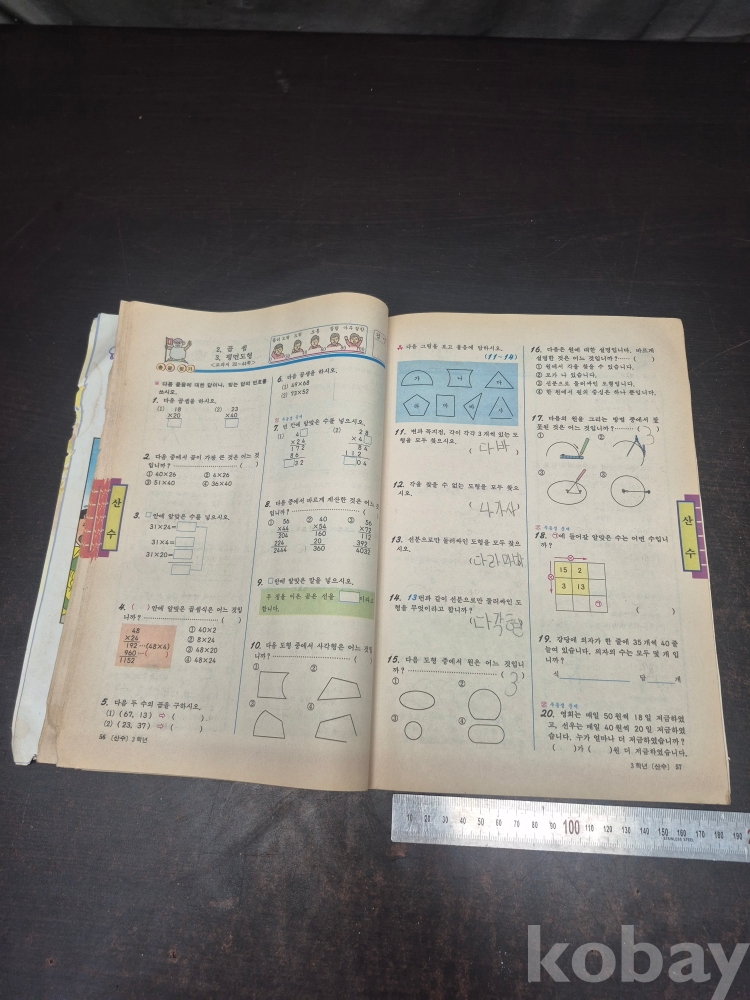 2. 곱 셈
3. 평면도형
※ 다음 물음에 대한 답이나, 맞는 답의 번호를 쓰시오.
1. 다음 곱셈을 하시오.
(1) 18 (2) 23
×20 ×40
2. 다음 중에서 곱이 가장 큰 것은 어느 것
입니까? ( )
① 40×26 ② 4×26
③ 51×40 ④ 36×40
3. □안에 알맞은 수를 넣으시오.
31×24=
31×4=
31×20=
4. ( ) 안에 알맞은 곱셈식은 어느 것입
니까? ( )
48
×24
192 ···(48×4)
960 ···( )
1152
① 40×2
② 8×24
③ 48×20
④ 48×24
5. 다음 두 수의 곱을 구하시오.
(1) (67, 13) ⇨ ( ).
(2) (23, 37) ⇨ ( ).
56 (산수) 3학년
산 수
6. 다음 곱셈을 하시오.
(1) 49×68
(2) 73×52
7. 빈 안에 알맞은 수를 넣으시오.
(1) 4□ (2) 2 8
×2 4 ×4□
1 7 2 8 4
8 6 1 1 2
□3 2 □0 4
8. 다음 중에서 바르게 계산한 것은 어느
입니까? ( )
① 56 ② 40 ③ 56
×44 ×54 ×72
204 160 112
224 20 392
2444 360 4032
9. □안에 알맞은 말을 넣으시오.
두 점을 이은 곧은 선을 □이라고
합니다.
10. 다음 도형 중에서 사각형은 어느 것
니까? ( )
① ②
③ ④
다음 그림을 보고 물음에 답하시오.
(11~14)
가 나 다
라 마 바 사
11. 변과 꼭지점, 각이 각각 3개씩 있는 도
형을 모두 찾으시오.
( 다바 )
12. 각을 찾을 수 없는 도형을 모두 찾으
시오.
( 나가사 )
13. 선분으로만 둘러싸인 도형을 모두 찾으
시오.
( 다라마바 )
14. 13번과 같이 선분으로만 둘러싸인 도
형을 무엇이라고 합니까?
( 다각형 )
15. 다음 도형 중에서 원은 어느 것입니
까? ( 3 )
① ②
③ ④
16. 다음은 원에 대한 설명입니다. 바르게
설명한 것은 어느 것입니까? ( )
① 원에서 각을 찾을 수 있습니다.
② 모가 나 있습니다.
③ 선분으로 둘러싸인 도형입니다.
④ 한 원에서 원의 중심은 하나 뿐입니다.
17. 다음의 원을 그리는 방법 중에서 잘
못된 것은 어느 것입니까? ( 3 )
① ②
③ ④
18. ㉠에 들어갈 알맞은 수는 어떤 수입니
까?
15 2
3 13
㉠
( )
19. 강당에 의자가 한 줄에 35개씩 40줄
놓여 있습니다. 의자의 수는 모두 몇 개 입
니까?
식 답 개
20. 영희는 매일 50원씩 18일 저금하였
고, 선우는 매일 40원씩 20일 저금하였
습니다. 누가 얼마나 더 저금하였습니까?
( )가 ( )원 더 저금하였습니다.
3학년 (산수) 57
산 수
10 20 30 40 50 60 70 80 90 100 110 120 130 140 150 160 170 180 190
STAINLESS STEEL
kobay